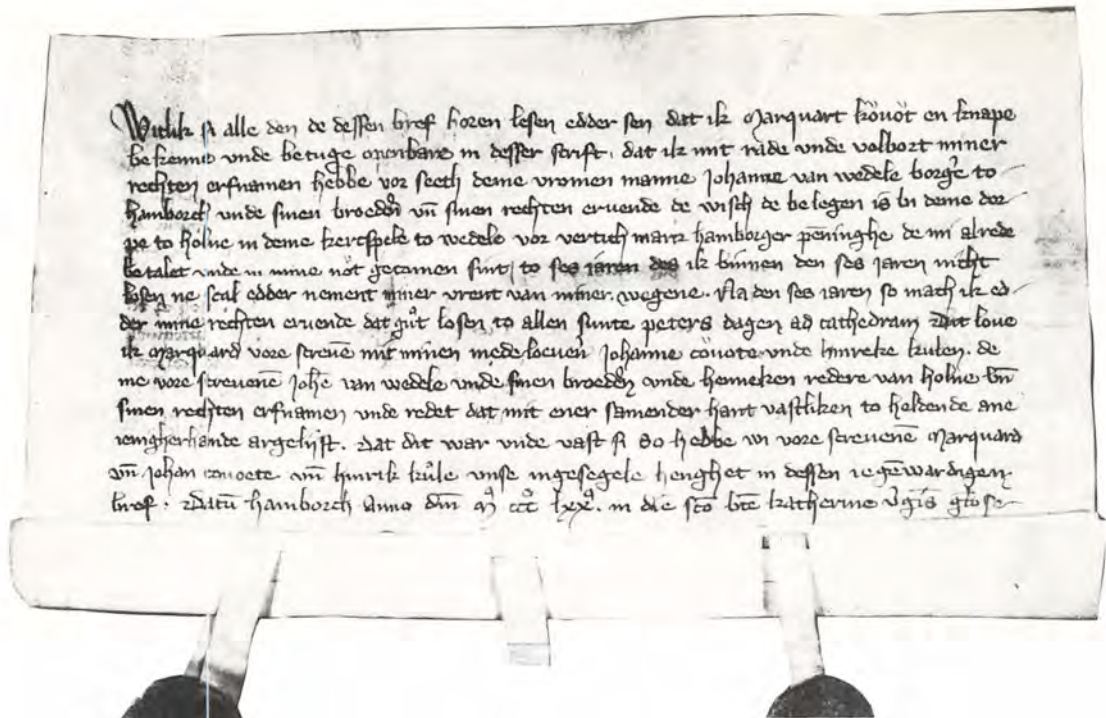 Witlik si alle den de dessen bref horen lesen edder sen dat ik Marquart kovot en knape
bekenne vnde betuge openbare in desser scrift. dat ik mit rade vnde volbort miner
rechten erfnamen hebbe vor seeth deme vromen manne Johanne van wedele borg̉e to
hamborch vnde sinen brodern vn̄ sinen rechten eruende de wisch de belegen is bi deme dor
pe to holne in deme kercspele to wedele vor vertich mark hamborger pēninghe de mi alrede
betalet vnde in mine nōt gecomen sint, to ses iaren des ik binnen den ses iaren nicht
losen ne scal edder nement miner vrent van miner wegene. Na den ses iaren so mach ik ed
der mine rechten eruende dat gůt losen to allen sunte peters dagen ad cathedram Dit loue
ik Marquard vore screuē mit minen medeloeuern Johanne couote vnde hinreke kulen. de
me vore screuenē Joh̄e van wedele vnde sinen brodern vnde henneken redere van holne vn̄
sinen rechten erfnamen vnde redet dat mit ener samender hant vastliken to holdende ane
iengherhande argelist. Dat dit war vnde vast si So hebbe wi vore screuenē Marquard
vn̄ Johan couoete vn̄ hinrik kůle vnse ingesegele henghet in dessen iegēwardigen
bref. Datū hamborch Anno dn̄i mͦ cccͦ lxxͦ. in die scē btē katherine v̄gīs gl̄ōse